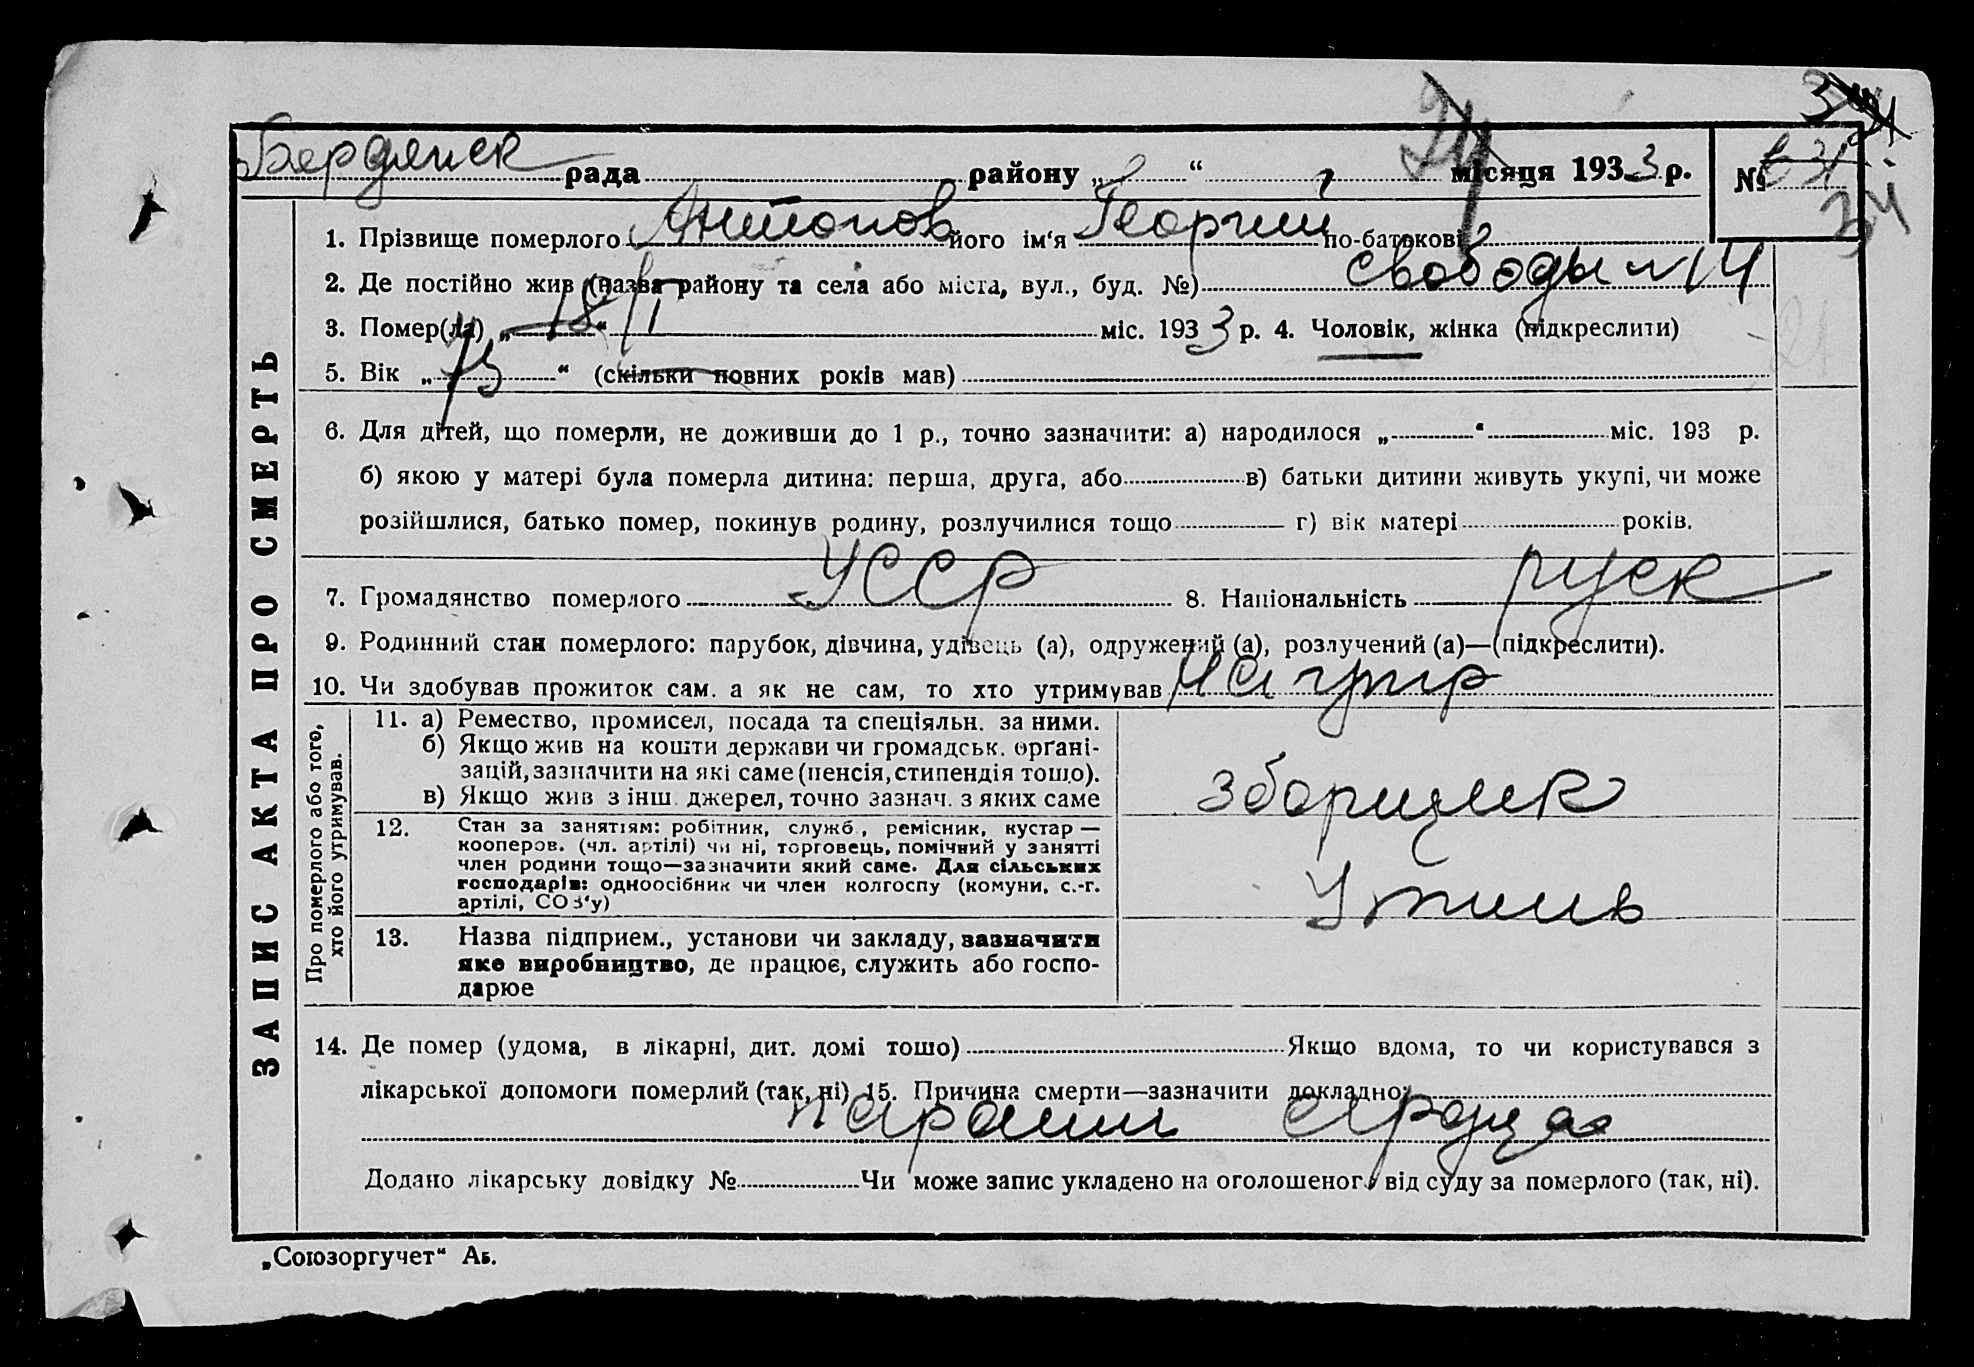 Бердянск рада района „ “ місяця 1933 р. №
34
1. Прізвище померлого Антонов його ім'я Георгий по-батькові
2. Де постійно жив (назва району та села або міста, вул., буд. №) Свободы № 14
3. Помер(ла) „18“ /1 міс. 1933 р. 4. Чоловік, жінка (підкреслити)
5. Вік „ “ (скільки повних років мав)
6. Для дітей, що померли, не доживши до 1 р., точно зазначити: а) народилося „ “ міс. 193 р.
б) якою у матері була померла дитина: перша, друга, або в) батьки дитини живуть укупі, чи може
розійшлися, батько помер, покинув родину, розлучилися тощо г) вік матері років.
7. Громадянство померлого УССР 8. Національність руск
9. Родинний стан померлого: парубок, дівчина, удівець (а), одружений (а), розлучений (а)—(підкреслити).
10. Чи здобував прожиток сам, а як не сам, то хто утримував
ЗАПИС АКТА ПРО СМЕРТЬ
Про померлого або того,
хто його утримував.
11. а) Ремество, промисел, посада та спеціяльн. за ними.
б) Якщо жив на кошти держави чи громадськ. органі-
зацій, зазначити на які саме (пенсія, стипендія тощо).
в) Якщо жив з інш. джерел, точно зазнач. з яких саме
зборщик
12. Стан за заняттям: робітник, служб., ремісник, кустар —
кооперов. (чл. артілі) чи ні, торговець, помічний у занятті
член родини тощо—зазначити який саме. Для сільських
господарів: одноосібник чи член колгоспу (комуни, с.-г.
артілі, СОЗ'у)
13. Назва підприєм., установи чи закладу, зазначити
яке виробництво, де працює, служить або госпо-
дарює
14. Де помер (удома, в лікарні, дит. домі тощо) Якщо вдома, то чи користувався з
лікарської допомоги померлий (так, ні) 15. Причина смерти—зазначити докладно:
сердца
Додано лікарську довідку № Чи може запис укладено на оголошеног від суду за померлого (так, ні).
„Союзоргучет“ Аб.